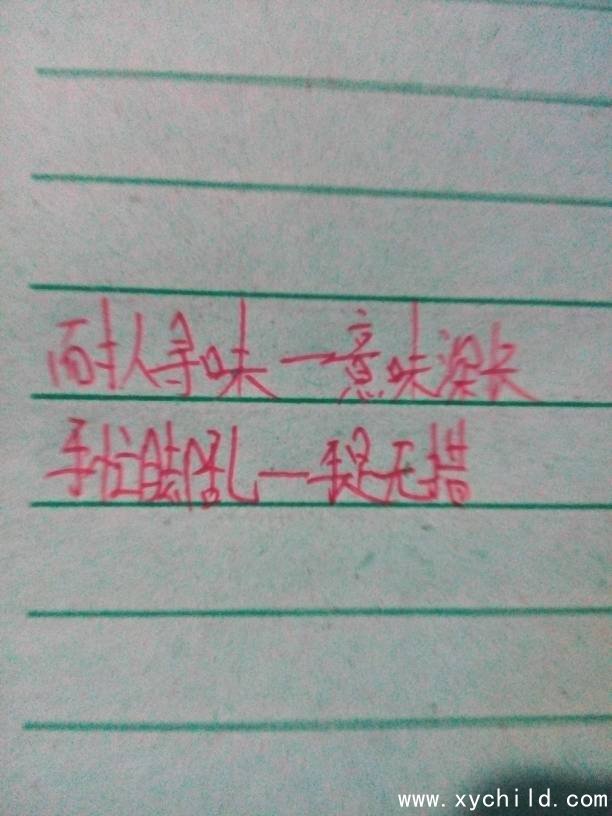 耐人寻味一意味深长
手忙脚乱一手足无措
www.xychild.com